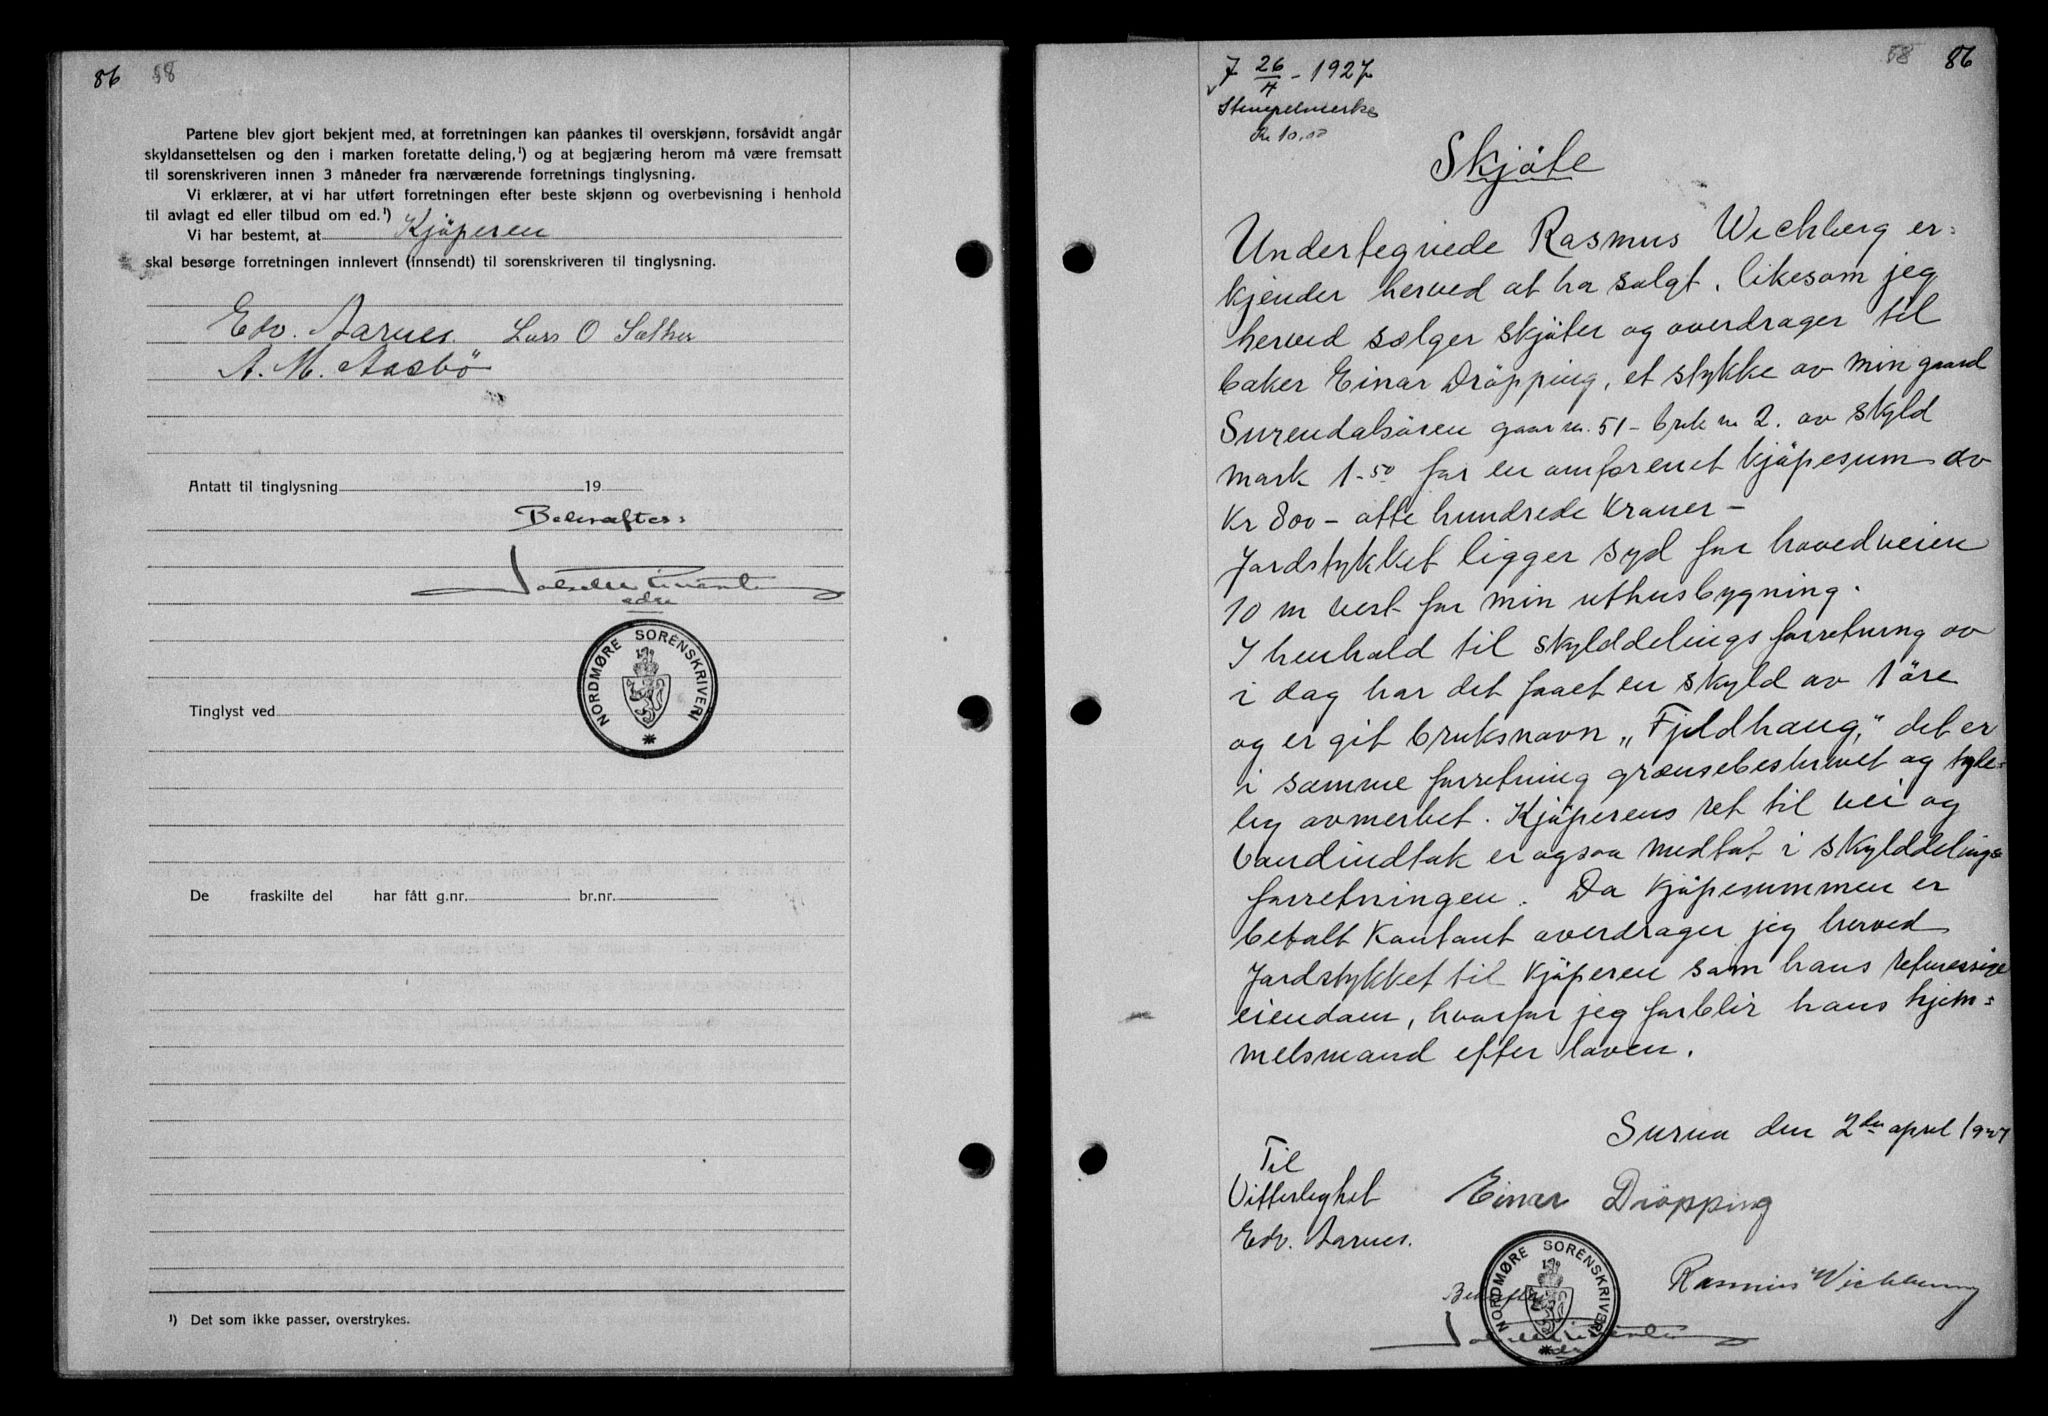 86 58
Partene blev gjort bekjent med, at forretningen kan påankes til overskjønn, forsåvidt angår
skyldansettelsen og den i marken foretatte deling,¹) og at begjæring herom må være fremsatt
til sorenskriveren innen 3 måneder fra nærværende forretnings tinglysning.
Vi erklærer, at vi har utført forretningen efter beste skjønn og overbevisning i henhold
til avlagt ed eller tilbud om ed.¹)
Vi har bestemt, at Kjöperen
skal besørge forretningen innlevert (innsendt) til sorenskriveren til tinglysning.
Edv. Aarnes. Lars O Sæther
A. M. Aasbö
Antatt til tinglysning 19
Bekræftes:
edsv
NORDMØRE SORENSKRIVERI
Tinglyst ved
De fraskilte del har fått g.nr. br.nr.
¹) Det som ikke passer, overstrykes.
58 86
26/4 - 1927
Stempelmerke
Kr 10.00
Skjöte
Undertegnede Rasmus Wichberg er=
kjender herved at ha solgt, likesom jeg
herved sælger skjöter og overdrager til
baker Einar Dröpping, et stykke av min gaard
Surendalsören gaar nr. 51 - bruk nr 2. av skyld
mark 1-50 for en omforenet kjöpesum av
Kr 800 - otte hundrede kroner -
Jordstykket ligger syd for hovedveien
10 m vest for min uthusbygning.
I henhold til skylddelingsforretning av
i dag har det faaet en skyld av 1 öre
og er git bruksnavn „Fjeldhaug," det er
i samme forretning grænsebeskrevet og tyde=
lig avmerket. Kjöperens ret til vei og
vandindtak er ogsaa medtat i skylddelings=
forretningen. Da kjöpesummen er
betalt kontant overdrager jeg herved
Jordstykket til kjöperen som hans retmessige
eiendom, hvorfor jeg forblir hans hjem=
melsmand efter loven.
Surna den 2den april 1927
Til
Vitterlighet Einar Dröpping
Edv. Aarnes.
Rasmus Wichberg
Bekræftes
NORDMØRE SORENSKRIVERI